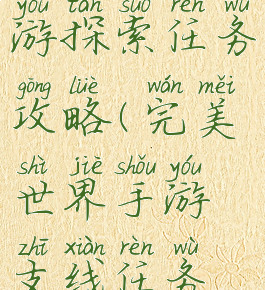 yóu tàn suǒ rèn wù
游探索任务
gōng lüè wán měi
攻略(完美
shì jiè shǒu yóu
世界手游
zhī xiàn rèn wù
支线任务